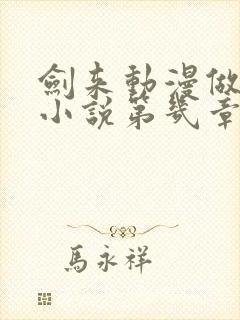 劍来動漫做
小說第幾章
馬永祥